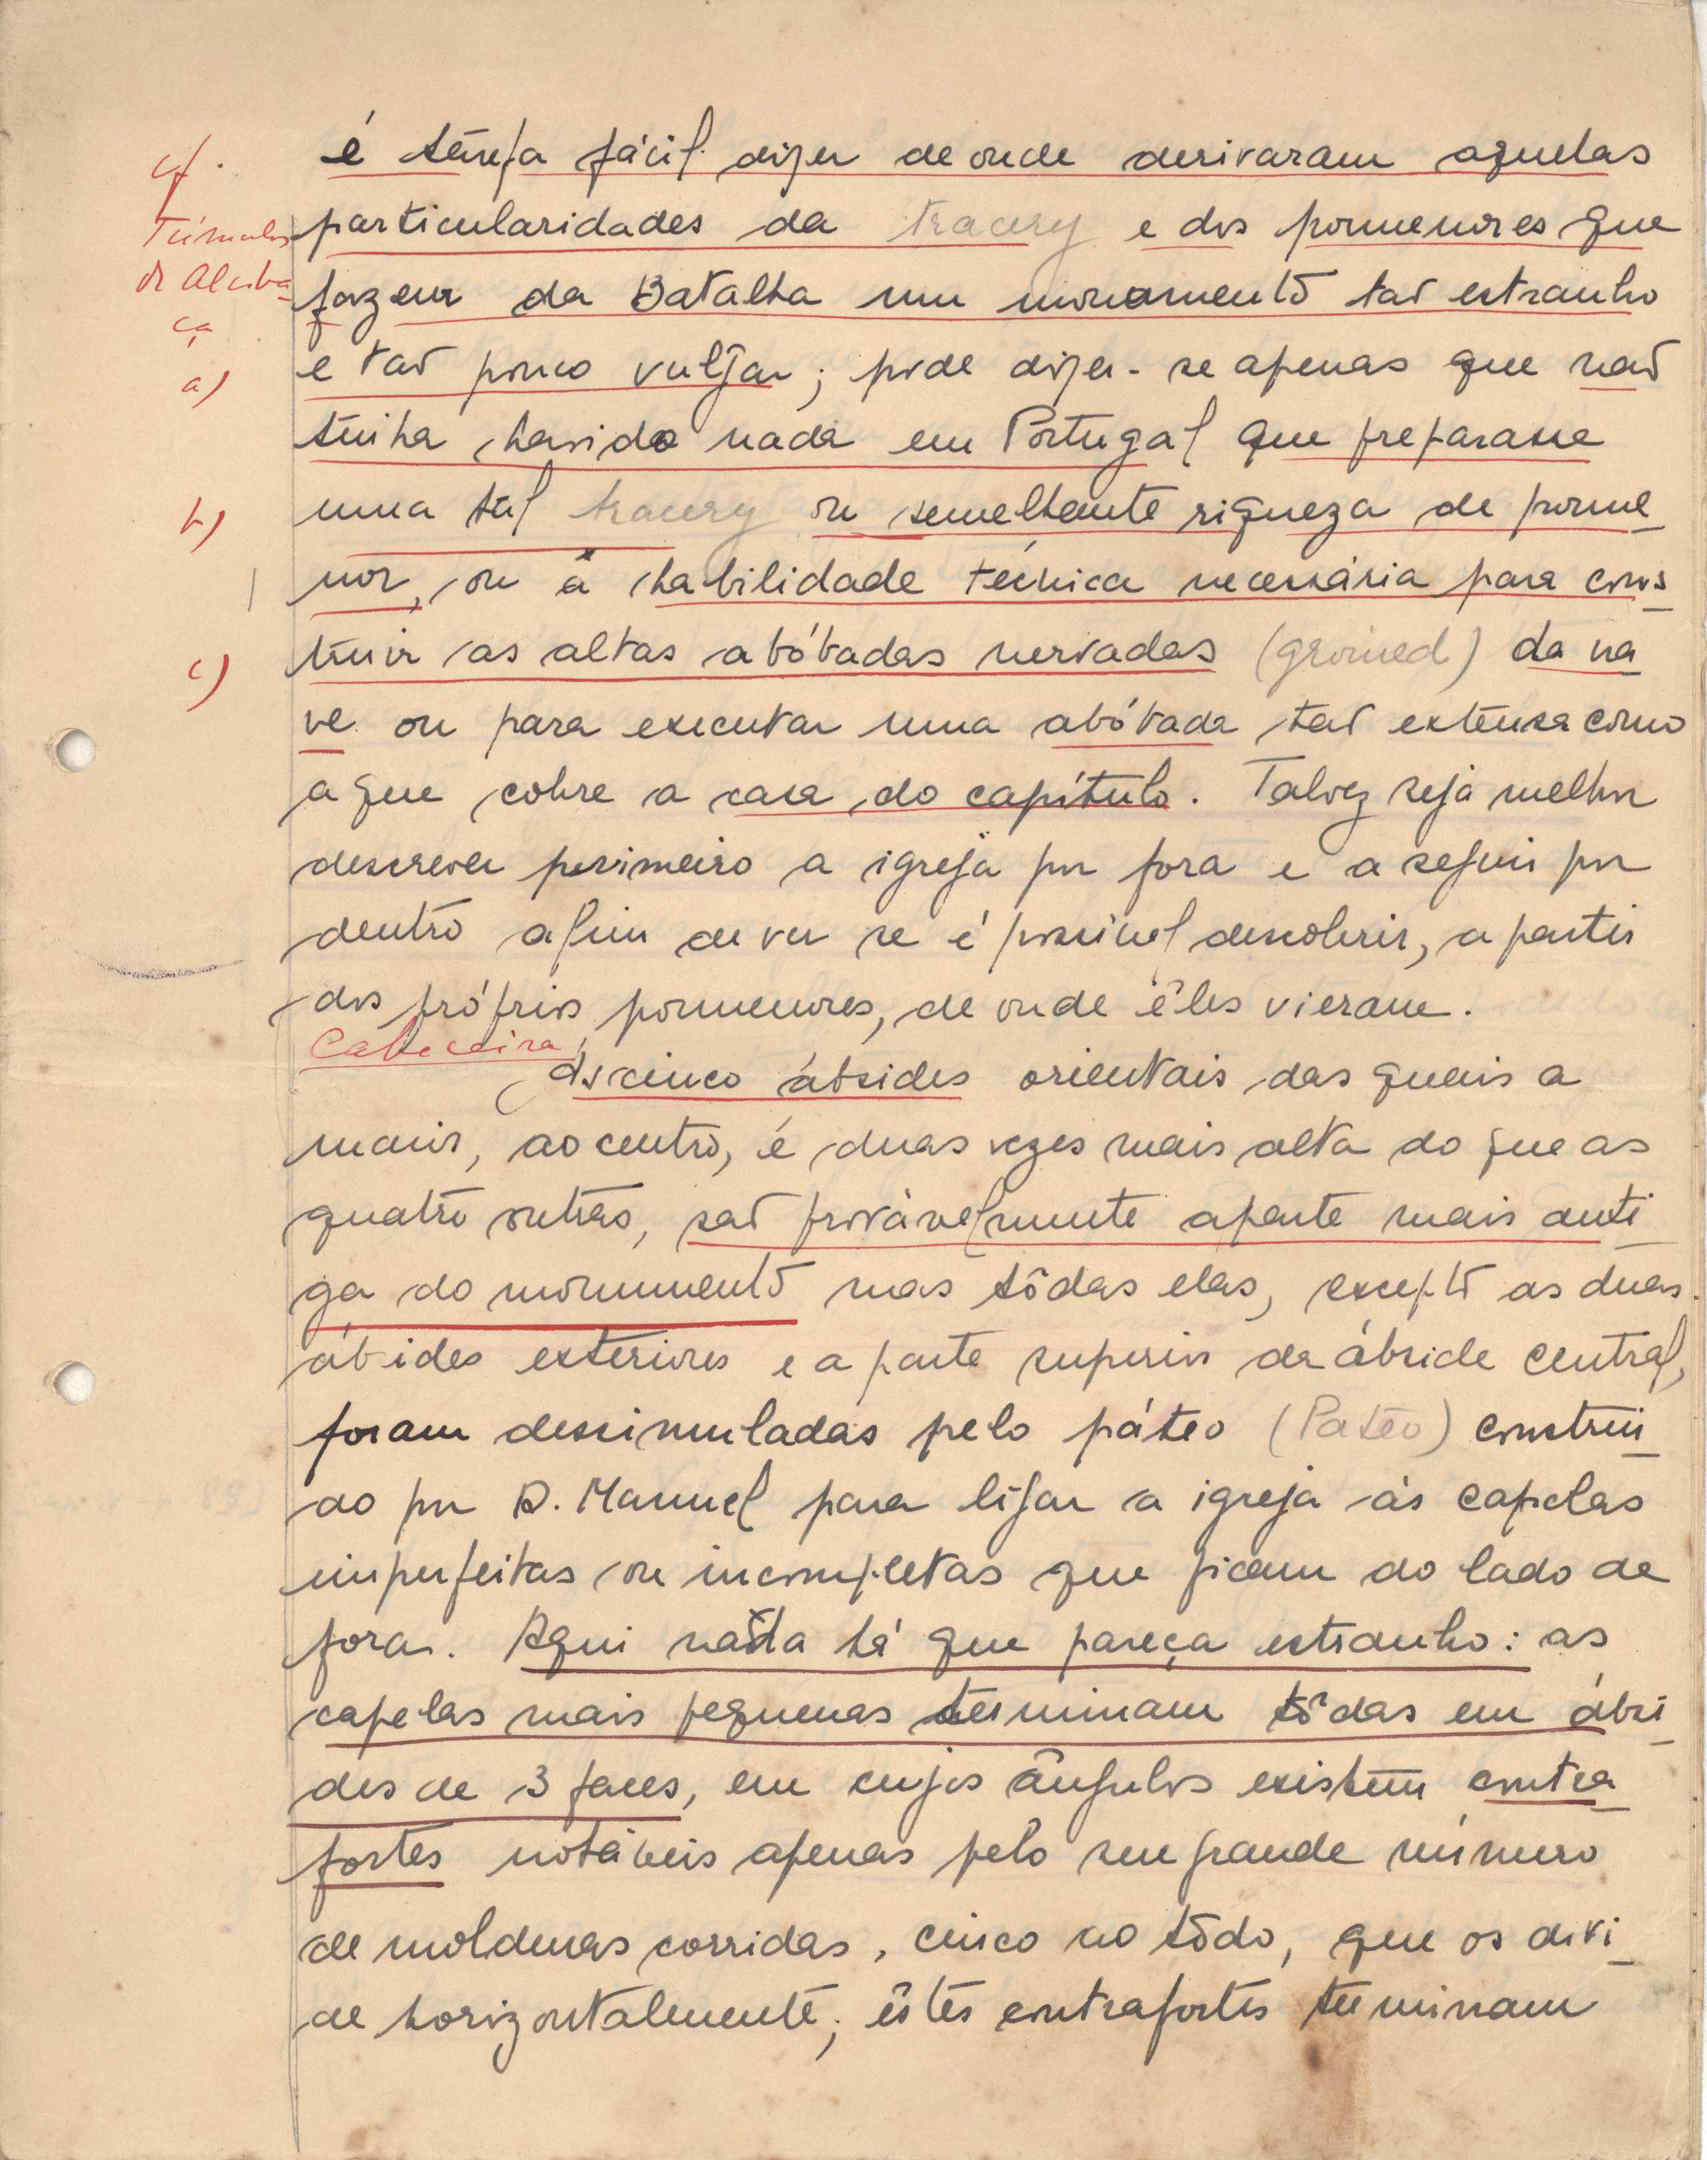 cf.
Túmulos
de Alcoba-
ça
a)
b)
c)
é tarefa fácil dizer de onde derivaram aquelas
particularidades da tracery e dos pormenores que
fazem da Batalha um monumento tão estranho
e tão pouco vulgar; pode dizer-se apenas que não
tinha havido nada em Portugal que preparasse
uma tal tracery ou semelhante riqueza de porme-
nor, ou a habilidade técnica necessária para cons-
truir as altas abóbadas nervadas (groined) da na-
ve ou para executar uma abóbada tão extensa como
a que cobre a casa do capítulo. Talvez seja melhor
descrever primeiro a igreja por fora e a seguir por
dentro afim de ver se é possível descobrir, a partir
dos próprios pormenores, de onde êles vieram.
Cabeceira
As cinco ábsides orientais das quais a
maior, ao centro, é duas vezes mais alta do que as
quatro outras, são provàvelmente a parte mais anti-
ga do monumento mas tôdas elas, excepto as duas
ábsides exteriores e a parte superior da ábside central,
foram dessimuladas pelo páteo (Pateo) construi-
do por D. Manuel para ligar a igreja às capelas
imperfeitas ou incompletas que ficam do lado de
fora. Aqui nada há que pareça estranho: as
capelas mais pequenas terminam tôdas em ábsi-
des de 3 faces, em cujos ângulos existem contra-
fortes notáveis apenas pelo seu grande número
de molduras corridas, cinco no tôdo, que os divi-
de horizontalmente; êstes contrafortes terminam